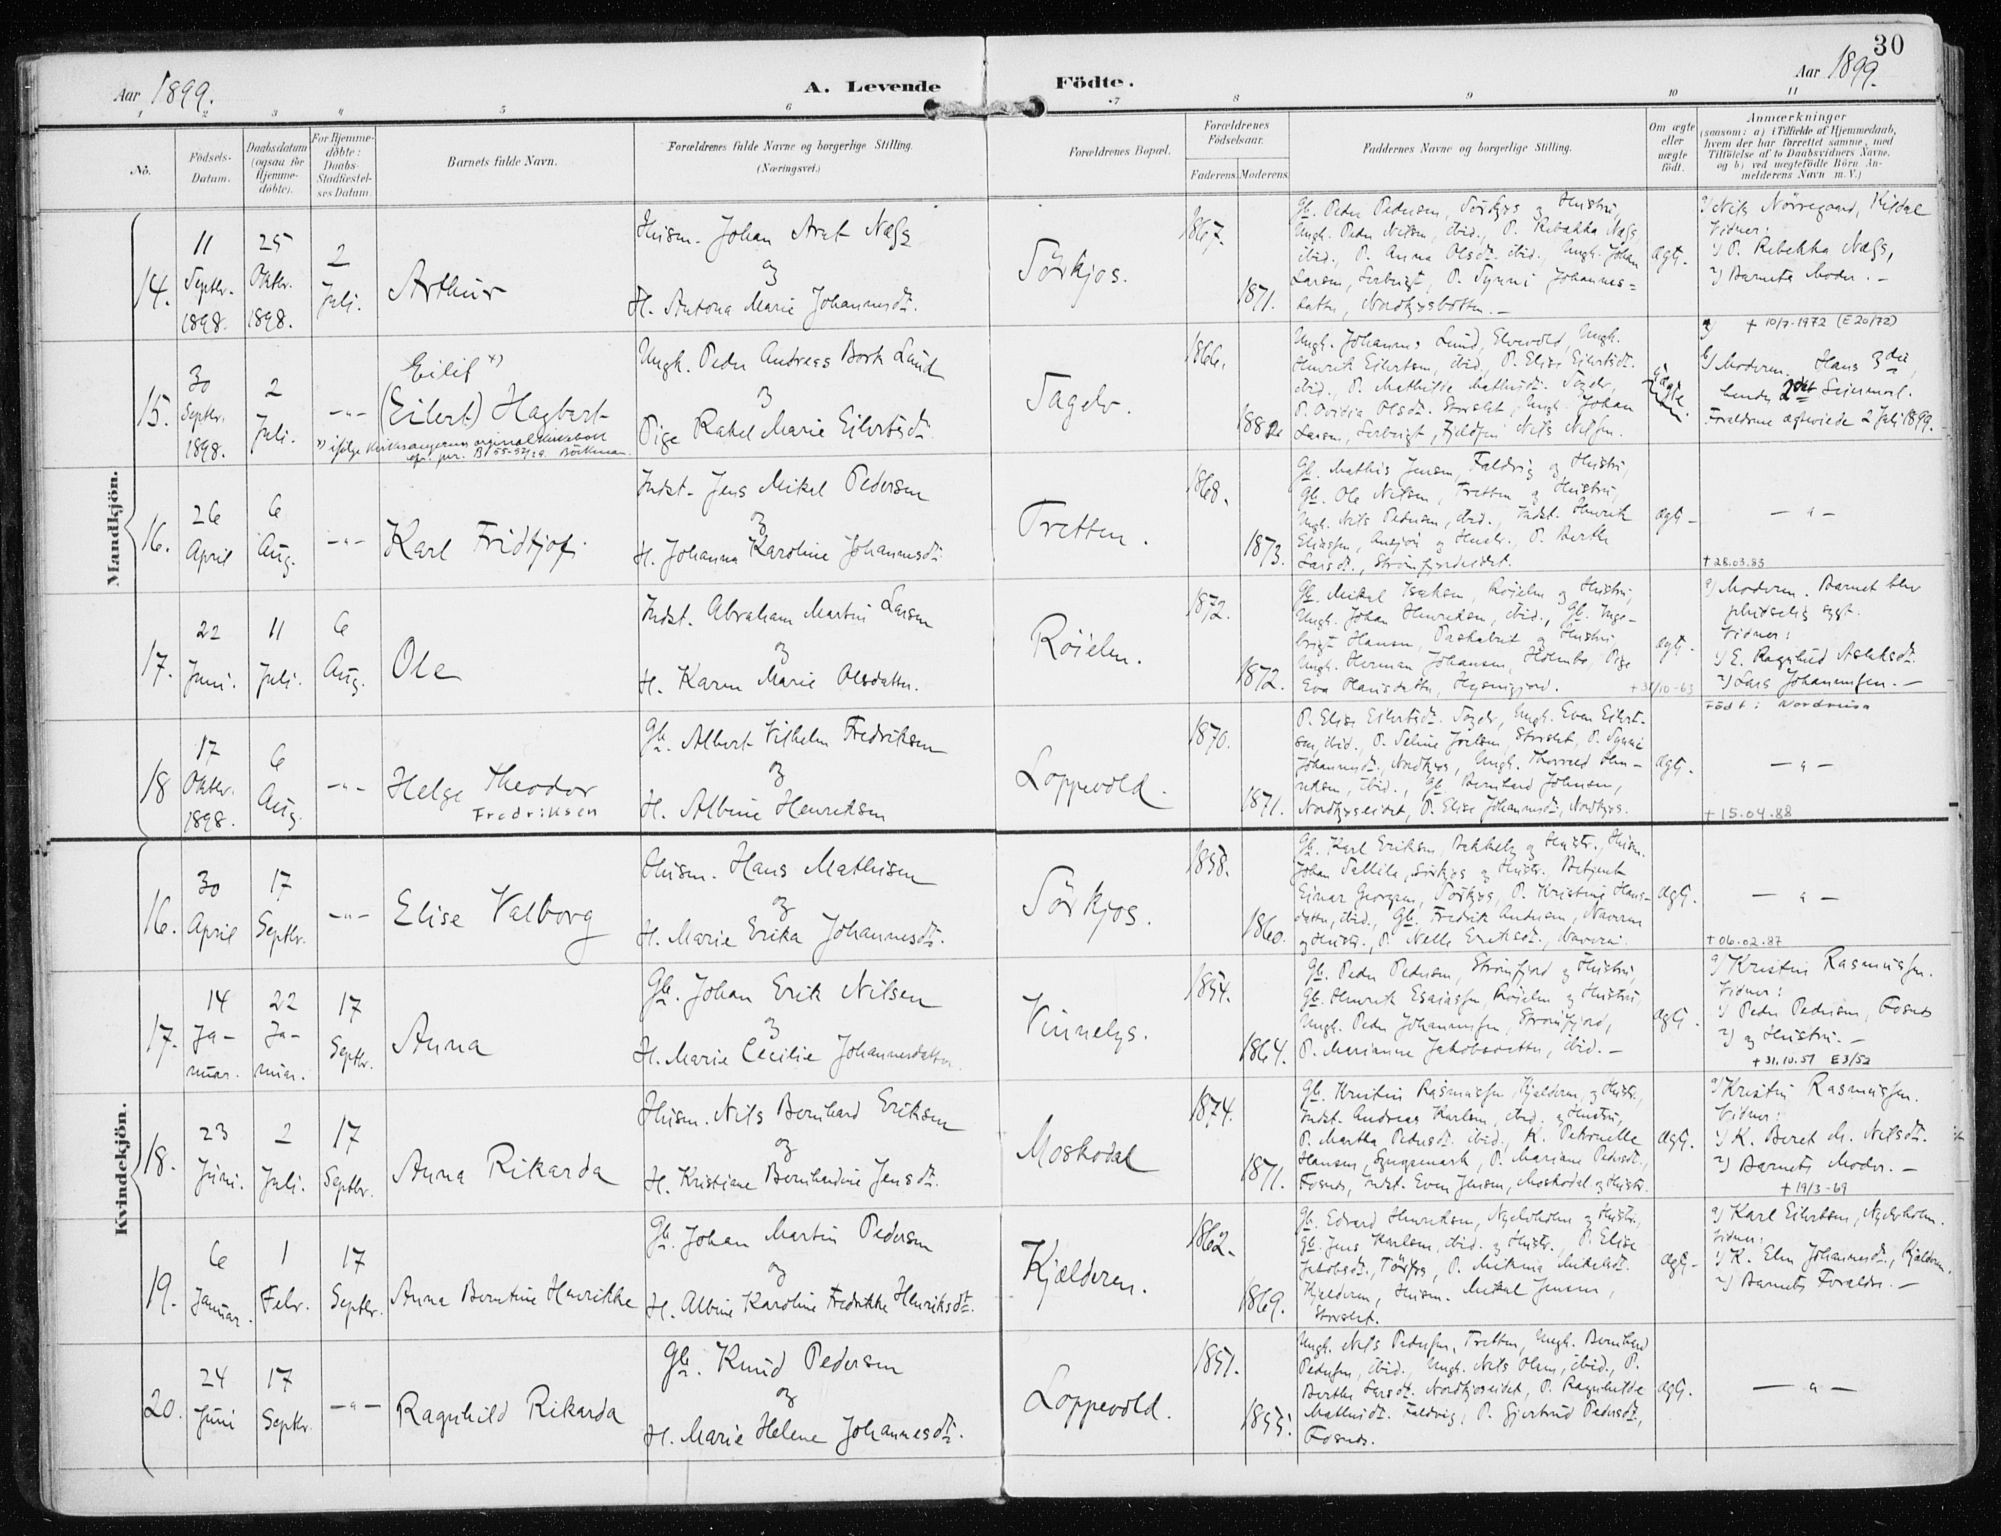 30
Aar 1899.
A. Levende Födte.
Aar 1899.
1 2 3 4 5 6 7 8 9 10 11
No.
Födsels-Datum.
Daabsdatum (ogsaa for Hjemme-döbte).
For Hjemme-döbte: Daabs-Stadfæstel-ses Datum.
Barnets fulde Navn.
Forældrenes fulde Navne og borgerlige Stilling.
(Næringsvei.)
Forældrenes Bopæl.
Forældrenes Födselsaar.
Faderens. Moderens.
Faddernes Navne og borgerlige Stilling.
Om ægte eller uægte født.
Anmærkninger
(saasom: a) i Tilfælde af Hjemmedaab, hvem der har forrettet samme, med Tilföielse af to Daabsvidners Navne, og b) ved uægtefödte Börn An-melderens Navn m. V.)
Mandkjön.
14.
11 Septbr. 1898.
25 Oktbr. 1898.
2 Juli.
Arthur
Husm. Johan Arnt Næss
og
H. Antona Marie Johannesdt.
Sörkjos.
1867.
1871.
Gb. Peder Pedersen, Sörkjos og Hustru,
Ungk. Peder Nilsen, ibid., P. Rebekka Næss
ibid., P. Anna Olsdt. ibid., Ungk. Johan
Larsen, P. Synni Johannes=
datter, Nordkjosbotten. —
ægt.
a) Nils Nörregaard, Kildal
Vidner:
1) P. Rebekka Næss,
2) Barnets Moder. —
15.
30 Septbr. 1898.
2 Juli.
-"-
Eilif x)
(Eilert) Hagbart
x) ifølge kirkesangerens original kirkebok
Ungk. Peder Andreas Bork Lund
og
Pige Rakel Marie Eilertsdt.
Sagelv.
1866.
1882.
Ungk. Johannes Lund, Elvevold, Ungk.
Henrik Eilertsen, ibid., P. Elise Eilertsdt.
ibid., P. Mathilde Mathisdt.
P. Ovidia Olsdt. Storslet, Ungk. Johan
Larsen, Nils Nilsen.
+ 10/7-1972 (E 20/72)
b) Moderen. Hans 3die,
hendes 2det Leiermaal.
Forældrene ægteviede 2 Juli 1899.
16.
26 April
6 Aug.
-"-
Karl Fridtjof
Indst. Jens Mikel Pedersen
og
H. Johanna Karoline Johannesdt.
Tretten.
1868.
1873.
Gb. Mathis Jensen, Faldvig og Hustru,
Gb. Ole Nilsen, Tretten og Hustru,
Ungk. Nils Pedersen, ibid., Indst. Henrik
Eliassen, og Hustr., P. Berthe
Larsdt., Strömfjordeidet.
ægt.
— " —
+ 28.03.83
17.
22 Juni.
11 Juli.
6 Aug.
Ole
Indst. Abraham Martin Larsen
og
H. Karen Marie Olsdatter.
Röielen.
1872.
1872.
Gb. Mikal Isaksen, Röielen og Hustru,
Ungk. Johan Henriksen, ibid., Gb. Inge-
brigt Hansen, og Hustru
Ungk. Herman Johansen, Holmbo, Pige
Eva Hansdatter,
ægt.
+ 31/10-63
a) Moderen. Barnet blev
pludselig sygt.
Vidner:
1) E. Ragnhild Aslaksdt.
2) Lars Johannessen. —
Födt: Nordreisa
18
17 Oktbr. 1898.
6 Aug.
-"-
Helge Theodor
Fredriksen
Gb. Albert Vilhelm Fredriksen
og
H. Albine Henriksen
Loppevold.
1870.
1871.
P. Elise Eilertsdt. Ungk. Even Eilert-
sen, ibid., P. Storslet, P. Synni
Johannesdt., Nordkjos, Ungk. Thorvald Hen-
riksen, ibid., Gb. Bernhard Johnsen,
Nordkjoseidet, P. Elise Johannesdt., Nordkjos.
ægt.
— " —
+ 15.04.88
Kvindekjön.
16.
30 April
17 Septbr.
-"-
Elise Valborg
Husm. Hans Mathisen
og
H. Marie Erika Johannesdt.
Sörkjos.
1858.
1860.
Gb. Karl Eriksen, Bakkeby og Hustr., Husm.
Johan Sörkjos og Hustr. Betjent
Einar Georgsen, Sörkjos, P. Kristine Hans-
datter, ibid., Gb. Fredrik Andersen,
og Hustr., P. Nelle Eriksdt.,
ægt.
— " —
+ 06.02.87
17.
14 Ja-nuar.
22 Ja-nuar.
17 Septbr.
Anna
Gb. Johan Erik Nilsen
og
H. Marie Cecilie Johannesdatter
Vinnelys.
1854.
1864.
Gb. Peder Pedersen, Strömfjord og Hustru,
Gb. Henrik Esaiassen, Röielen og Hustru,
Ungk. Peder Johannessen, Strömfjord,
P. Marianne Jakobsdatter, ibid. —
ægt.
a) Kristen Rasmussen.
Vidner:
1) Peder Pedersen, Fosnes
2) og Hustru. —
+ 31.10.51 E3/52
18.
23 Juni.
2 Juli.
17 Septbr.
Anna Rikarda
Husm. Nils Bernhard Eriksen
og
H. Kristiane Bernhardine Jensdt.
Moskodal
1874.
1871.
Gb. Kristen Rasmussen, Kjelderen, og Hustr.,
Indst. Andreas Karlsen, ibid. og Hustru,
P. Martha Pedersdt. ibid., K. Petronelle
Hansen, P. Mariane Pedersdt.,
Fosnes, Indst. Even Jensen, Moskodal og Hustr.
ægt.
a) Kristen Rasmussen.
Vidner:
1) K. Beret M. Nilsdt.
2) Barnets Moder. —
+ 19/3-69
19.
6 Januar.
1 Febr.
17 Septbr.
Anna Berntine Henrikke
Gb. Johan Martin Pedersen
og
H. Albine Karoline Fredrikke Henriksdt.
Kjælderen.
1862.
1869.
Gb. Edvard Henriksen, Nyelvholm og Hustr.,
Gb. Jens Karlsen, ibid. og Hustr., P. Elise
Jakobsdt., P. Mikkelsdt.
Kjelderen, Husm. Mikal Jensen,
Storslet.
ægt.
a) Karl Eilertsen, Nyelvholm.
Vidner:
1) K. Elen Johannesdt., Kjælderen.
2) Barnets Forældre. —
20.
24 Juni
17 Septbr.
-"-
Ragnhild Rikarda
Gb. Knud Pedersen
og
H. Marie Helene Johannesdt.
Loppevold.
1851.
1855.
Ungk. Nils Pedersen, Tretten, Ungk. Bernhard
Pedersen, ibid., Ungk. Nils Olsen, ibid., P.
Berthe Larsdt. Nordkjoseidet, P. Ragnhilde
Mathisdt. Faldvig, P. Gjertrud Pedersdt.,
Fosnes.
ægt.
— " —